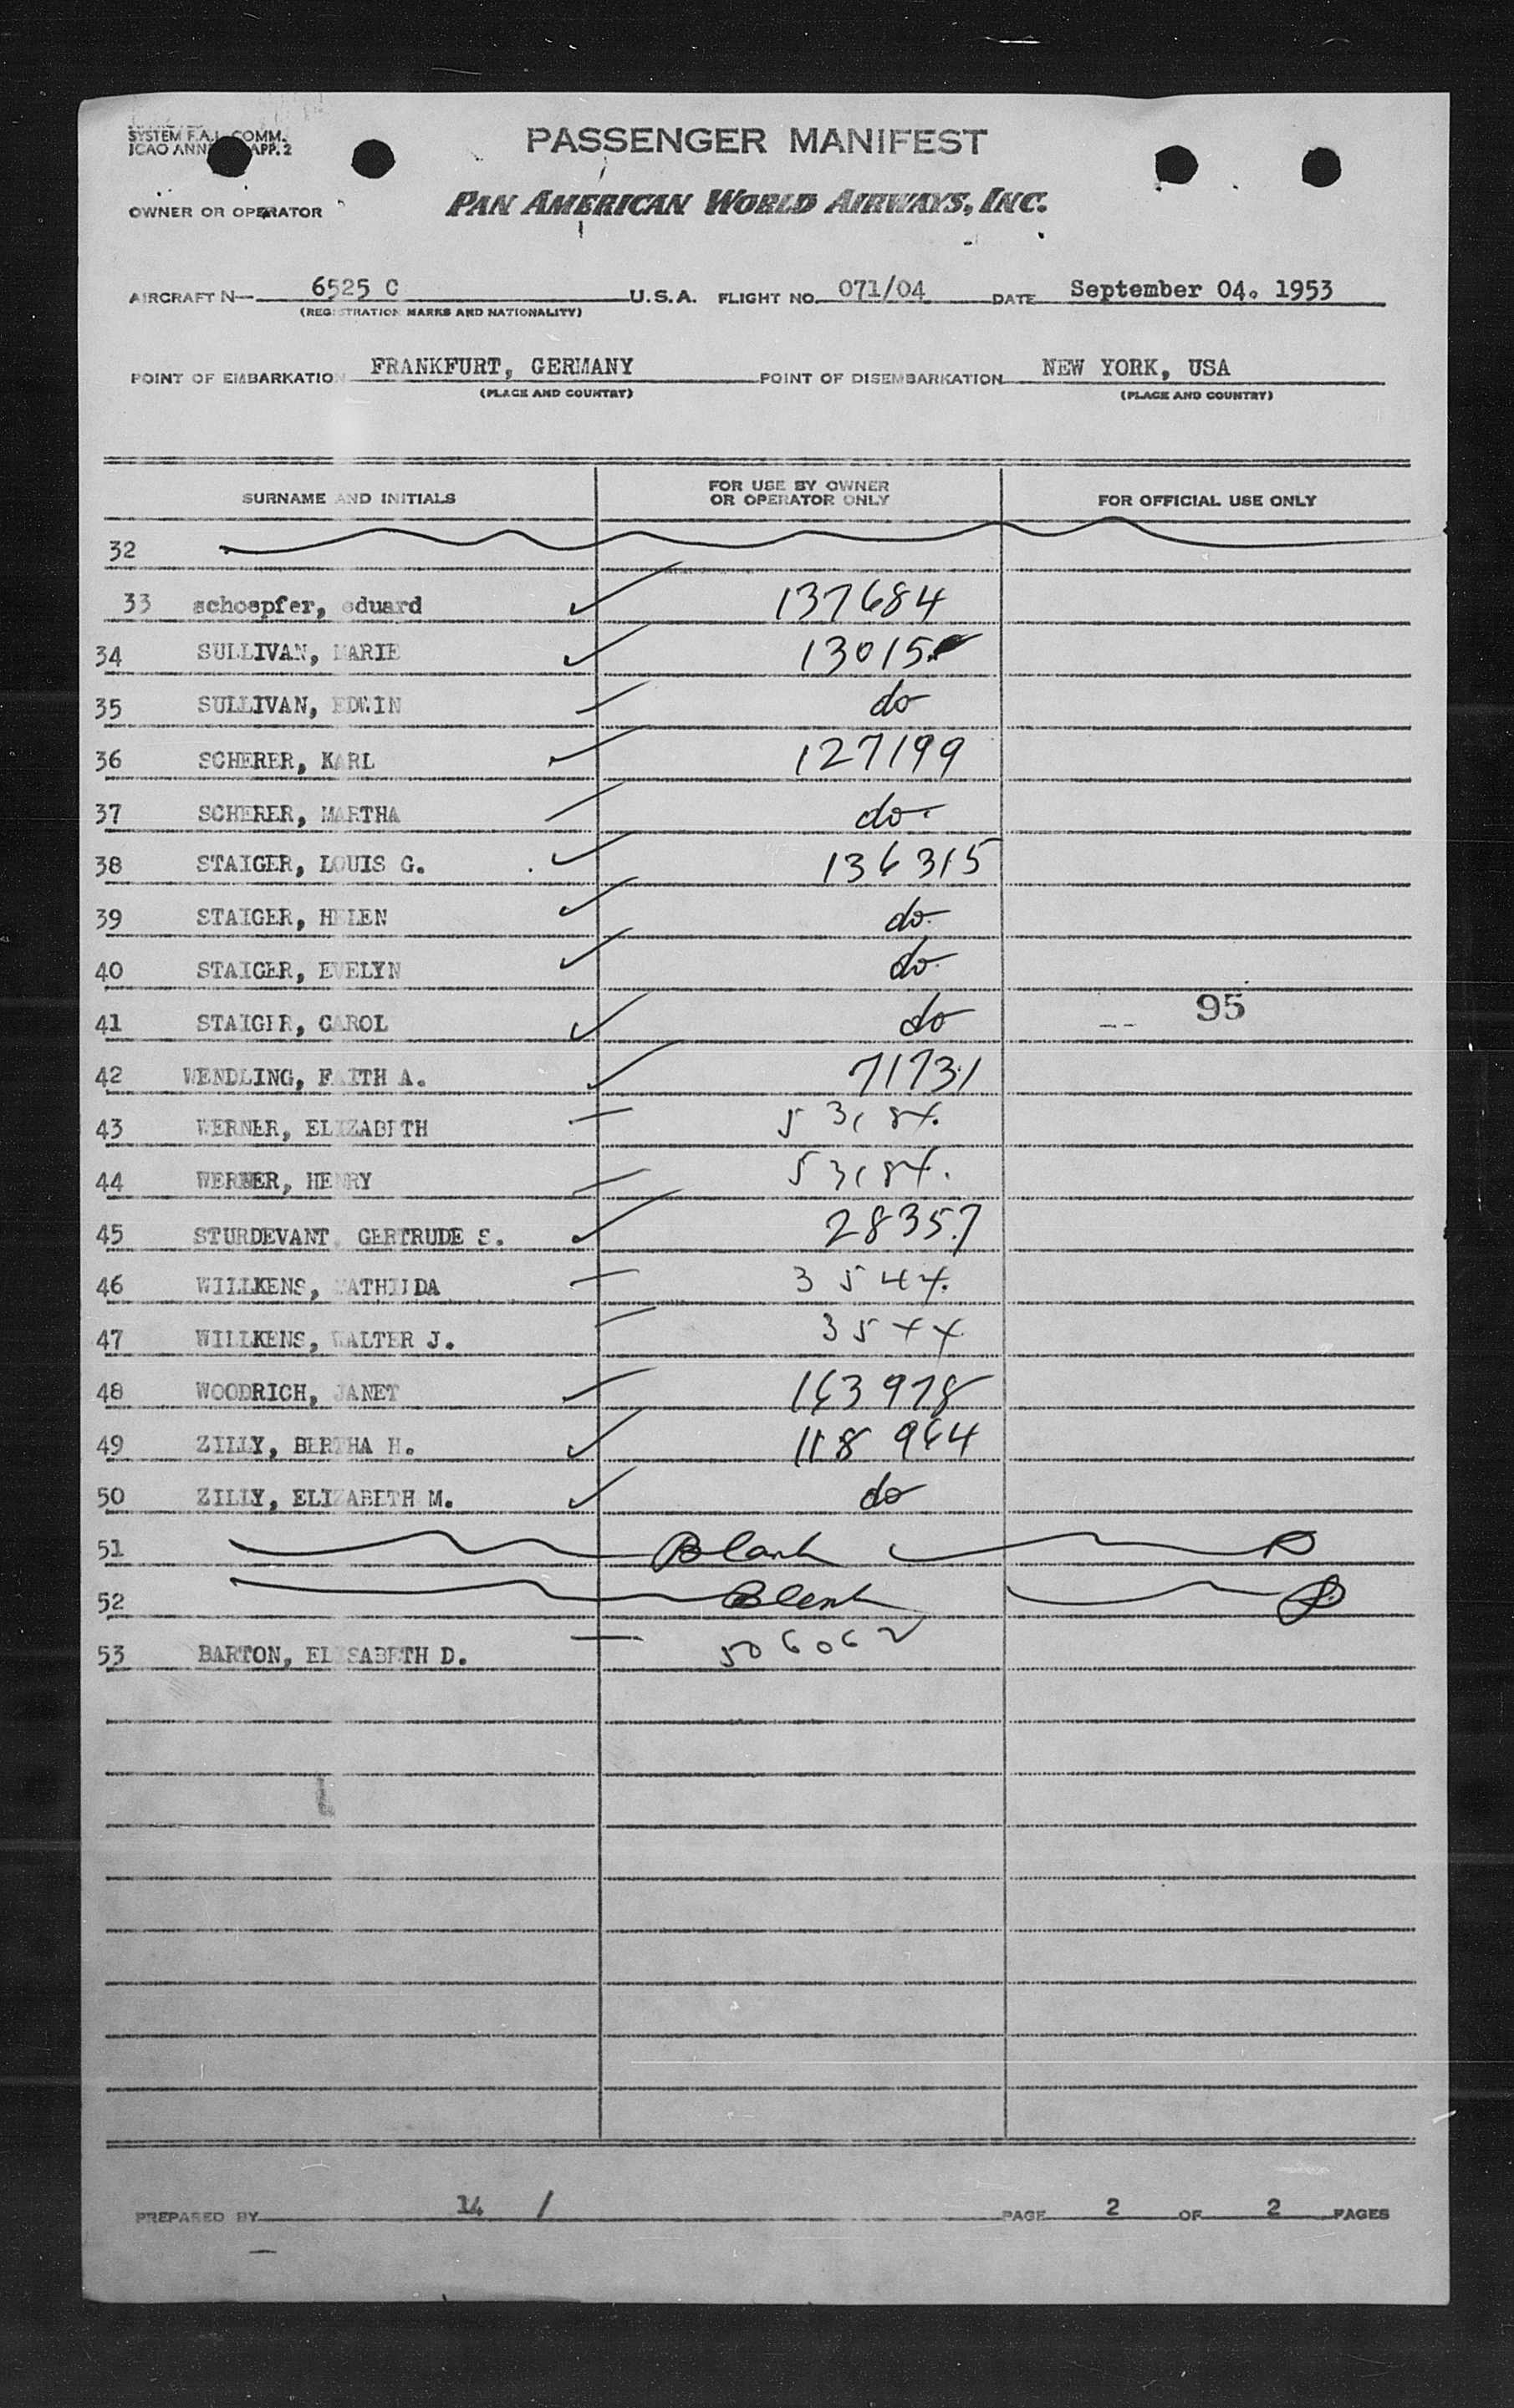 SYSTEM F.A.L. COMM.
ICAO APP. 2
PASSENGER MANIFEST
OWNER OR OPERATOR PAN AMERICAN WORLD AIRWAYS, INC.
AIRCRAFT N— 6525 C U.S.A. FLIGHT NO. 071/04 DATE September 04. 1953
(REGISTRATION MARKS AND NATIONALITY)
POINT OF EMBARKATION FRANKFURT, GERMANY POINT OF DISEMBARKATION NEW YORK, USA
(PLACE AND COUNTRY) (PLACE AND COUNTRY)
SURNAME AND INITIALS FOR USE BY OWNER OR OPERATOR ONLY FOR OFFICIAL USE ONLY
32
33 schoepfer, eduard 137684
34 SULLIVAN, MARIE 13015
35 SULLIVAN, EDWIN do
36 SCHERER, KARL 127199
37 SCHERER, MARTHA do
38 STAIGER, LOUIS G. 136315
39 STAIGER, HELEN do
40 STAIGER, EVELYN do
41 STAIGER, CAROL do 95
42 WENDLING, FAITH A. 71731
43 WERNER, ELIZABETH 53184.
44 WERNER, HENRY 53184.
45 STURDEVANT, GERTRUDE S. 28357
46 WILLKENS, MATHILDA 3544.
47 WILLKENS, WALTER J. 3544
48 WOODRICH, JANET 163978
49 ZILLY, BERTHA H. 118964
50 ZILLY, ELIZABETH M. do
51 Blank
52 Blank
53 BARTON, ELISABETH D. 506062
PREPARED BY 14 / PAGE 2 OF 2 PAGES